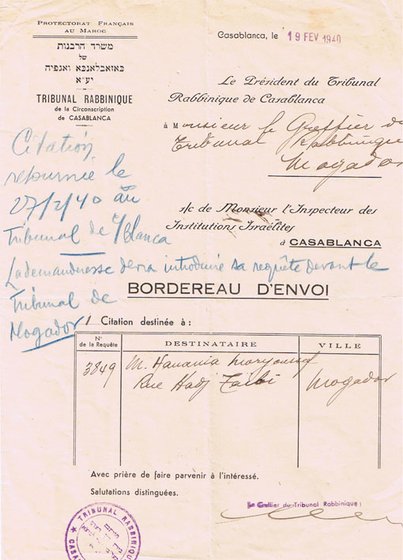 PROTECTORAT FRANÇAIS
AU MAROC
משרד הרבנות
של
בקאזאבלאנקא ואגפיה
יע״א
TRIBUNAL RABBINIQUE
de la Circonscription
de CASABLANCA
Casablanca, le 19 FEV 1940
Le Président du Tribunal
Rabbinique de Casablanca
à Monsieur le Greffier du
Tribunal Rabbinique
Mogador
s/c de Monsieur l'Inspecteur des
Institutions Israëlites
à CASABLANCA
Citation
retournée le
27/2/40 au
Tribunal de C/blanca
La demanderesse devra introduire sa requête devant le
Tribunal de
Mogador
BORDEREAU D'ENVOI
1 Citation destinée à :
N° de la Requête DESTINATAIRE VILLE
3849 M. Hanania Mogador
Rue Hadj
Avec prière de faire parvenir à l'intéressé.
Salutations distinguées.
Le Greffier du Tribunal Rabbinique :
TRIBUNAL RABBINIQUE